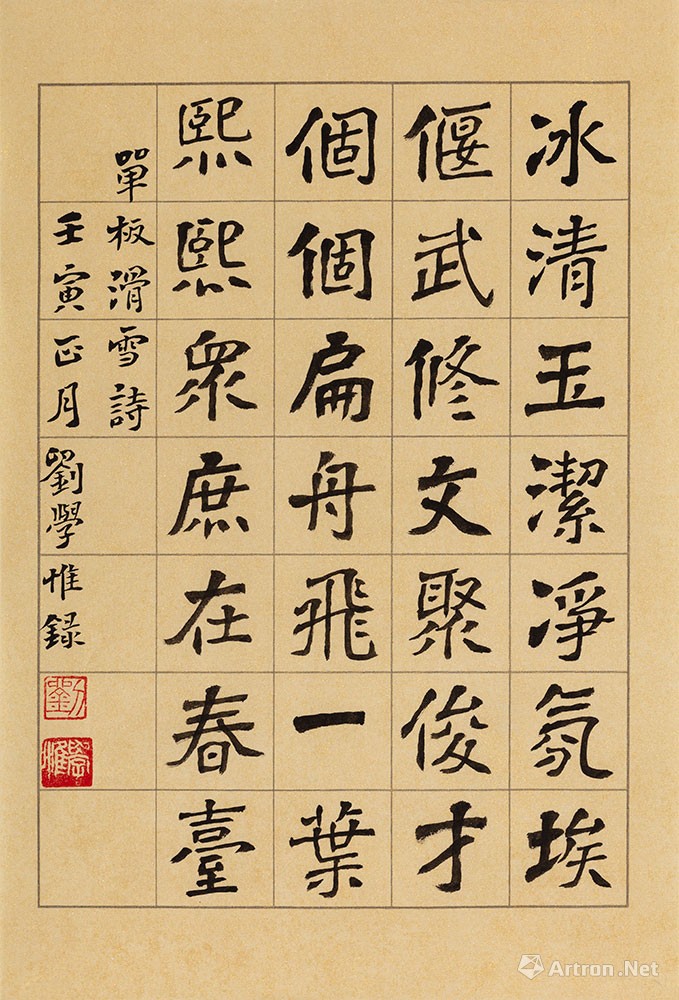 冰清玉潔淨氛埃
偃武修文聚俊才
個個扁舟飛一葉
熙熙眾庶在春臺
單板滑雪詩
壬寅正月劉學惟録
劉
Artron.Net